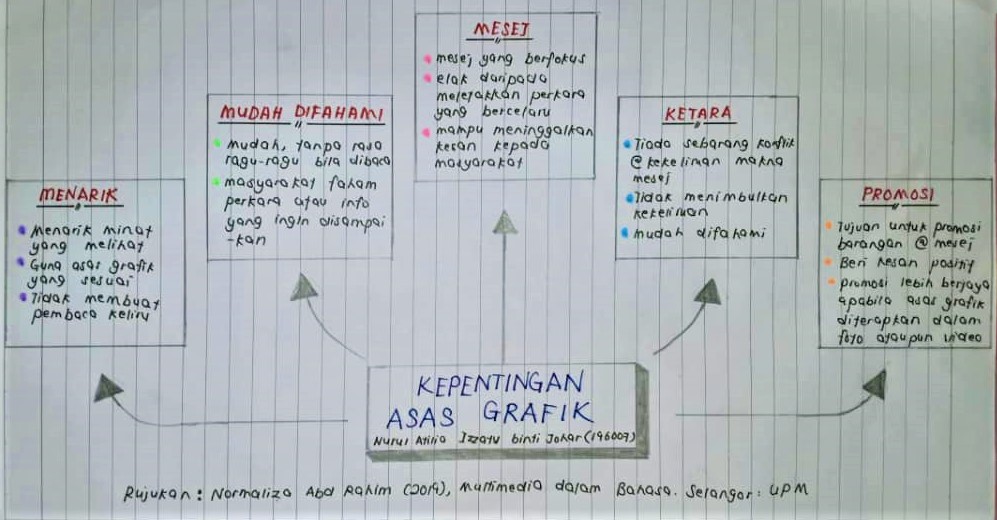 MESEJ
mesej yang berfokus
elak daripada
meletakkan perkara
yang bercelaru
mampu meninggalkan
kesan kepada
masyarakat
MUDAH DIFAHAMI
mudah, tanpa rasa
ragu-ragu bila dibaca
masyarakat faham
perkara atau info
yang ingin disampai
-kan
KETARA
Tiada sebarang konflik
@ kekeliruan makna
mesej
Tidak menimbulkan
kekeliruan
mudah difahami
MENARIK
Menarik minat
yang melihat
Guna asas grafik
yang sesuai
Tidak membuat
pembaca keliru
PROMOSI
Tujuan untuk promosi
barangan @ mesej
Beri kesan positif
promosi lebih berjaya
apabila asas grafik
diterapkan dalam
foto ataupun video
KEPENTINGAN
ASAS GRAFIK
Nurul Atilia Izzaty binti Johar (196007)
Rujukan : Normaliza Abd Rahim (2019), Multimedia dalam Bahasa. Selangor : UPM